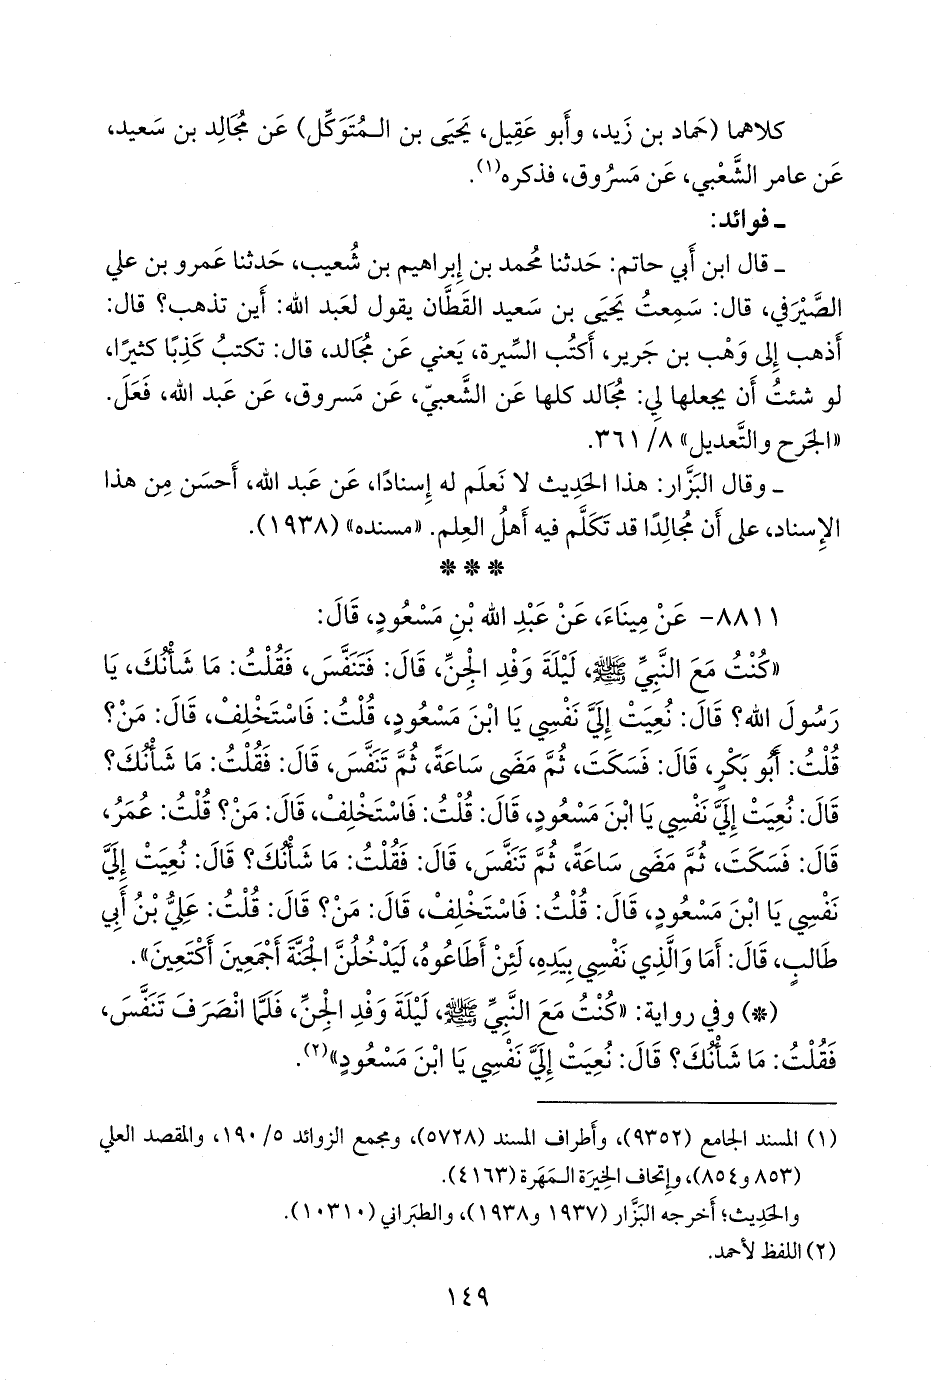 كلاهما (حَماد بن زَيد، وأَبو عَقِيل، يَحيَى بن الـمُتَوَكِّل) عَن مُجَالِد بن سَعيد،
عَن عامر الشَّعْبي، عَن مَسرُوق، فذكره(١).
ـ فوائد:
ـ قال ابن أَبي حاتم: حَدثنا مُحمد بن إِبراهيم بن شُعيب، حَدثنا عَمرو بن علي
الصَّيْرَفي، قال: سَمِعتُ يَحيَى بن سَعيد القَطَّان يقول لعَبد الله: أَين تذهب؟ قال:
أَذهب إِلى وَهْب بن جَرير، أَكتُب السِّيرة، يَعني عَن مُجَالد، قال: تكتبُ كَذِبًا كثيرًا،
لو شئتُ أَن يجعلها لِي: مُجَالد كلها عَن الشَّعبيّ، عَن مَسروق، عَن عَبد الله، فَعَلَ.
«الجَرح والتَّعديل» ٨/ ٣٦١.
ـ وقال البَزَّار: هذا الحَدِيث لا نَعلَم له إِسنادًا، عَن عَبد الله، أَحسَن مِن هذا
الإِسناد، على أَن مُجَالِدًا قد تَكَلَّم فيه أَهلُ العِلم. «مسنده» (١٩٣٨).
* * *
٨٨١١- عَنْ مِينَاءَ، عَنْ عَبْدِ الله بْنِ مَسْعُودٍ، قَالَ:
«كُنْتُ مَعَ النَّبِيِّ ﷺ، لَيْلَةَ وَفْدِ الْجِنِّ، قَالَ: فَتَنَفَّسَ، فَقُلْتُ: مَا شَأْنُكَ، يَا
رَسُولَ الله؟ قَالَ: نُعِيَتْ إِلَيَّ نَفْسِي يَا ابْنَ مَسْعُودٍ، قُلْتُ: فَاسْتَخْلِفْ، قَالَ: مَنْ؟
قُلْتُ: أَبُو بَكْرٍ، قَالَ: فَسَكَتَ، ثُمَّ مَضَى سَاعَةً، ثُمَّ تَنَفَّسَ، قَالَ: فَقُلْتُ: مَا شَأْنُكَ؟
قَالَ: نُعِيَتْ إِلَيَّ نَفْسِي يَا ابْنَ مَسْعُودٍ، قَالَ: قُلْتُ: فَاسْتَخْلِفْ، قَالَ: مَنْ؟ قُلْتُ: عُمَرُ،
قَالَ: فَسَكَتَ، ثُمَّ مَضَى سَاعَةً، ثُمَّ تَنَفَّسَ، قَالَ: فَقُلْتُ: مَا شَأْنُكَ؟ قَالَ: نُعِيَتْ إِلَيَّ
نَفْسِي يَا ابْنَ مَسْعُودٍ، قَالَ: قُلْتُ: فَاسْتَخْلِفْ، قَالَ: مَنْ؟ قَالَ: قُلْتُ: عَلِيُّ بْنُ أَبِي
طَالِبٍ، قَالَ: أَمَا وَالَّذِي نَفْسِي بِيَدِهِ، لَئِنْ أَطَاعُوهُ، لَيَدْخُلُنَّ الْجَنَّةَ أَجْمَعِينَ أَكْتَعِينَ».
(*) وفي رواية: «كُنْتُ مَعَ النَّبِيِّ ﷺ، لَيْلَةَ وَفْدِ الْجِنِّ، فَلَمَّا انْصَرَفَ تَنَفَّسَ،
فَقُلْتُ: مَا شَأْنُكَ؟ قَالَ: نُعِيَتْ إِلَيَّ نَفْسِي يَا ابْنَ مَسْعُودٍ»(٢).
(١) المسند الجامع (٩٣٥٢)، وأَطراف المسند (٥٧٢٨)، ومجمع الزوائد ٥/ ١٩٠، والمقصد العلي
(٨٥٣ و٨٥٤)، وإِتحاف الخِيرَة الـمَهَرة (٤١٦٣).
والحَدِيث؛ أَخرجه البَزَّار (١٩٣٧ و١٩٣٨)، والطبَراني (١٠٣١٠).
(٢) اللفظ لأَحمد.
١٤٩